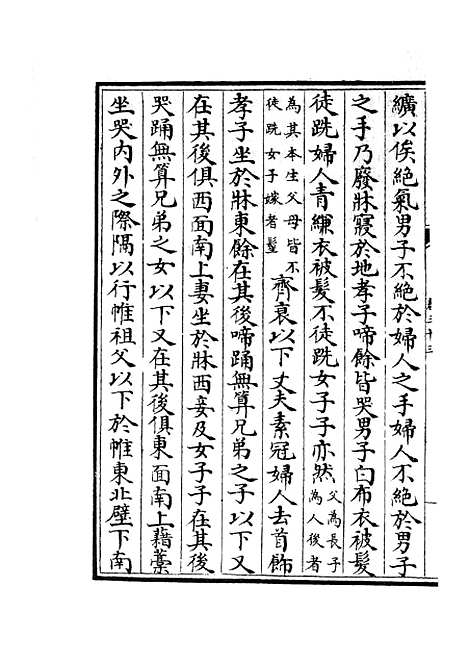 纊以俟絶氣男子不絶於婦人之手婦人不絶於男子
之手乃廢牀寢於地孝子啼餘皆哭男子白布衣被髮
徒跣婦人青縑衣被髮不徒跣女子子亦然父為長子為人後者
為其本生父母皆不徒跣女子嫁者髽齊衰以下丈夫素冠婦人去首飾
孝子坐於牀東餘在其後啼踊無算兄弟之子以下又
在其後俱西面南上妻坐於牀西妾及女子子在其後
哭踊無算兄弟之女以下又在其後俱東面南上藉藁
坐哭内外之際隔以行帷祖父以下於帷東北壁下南